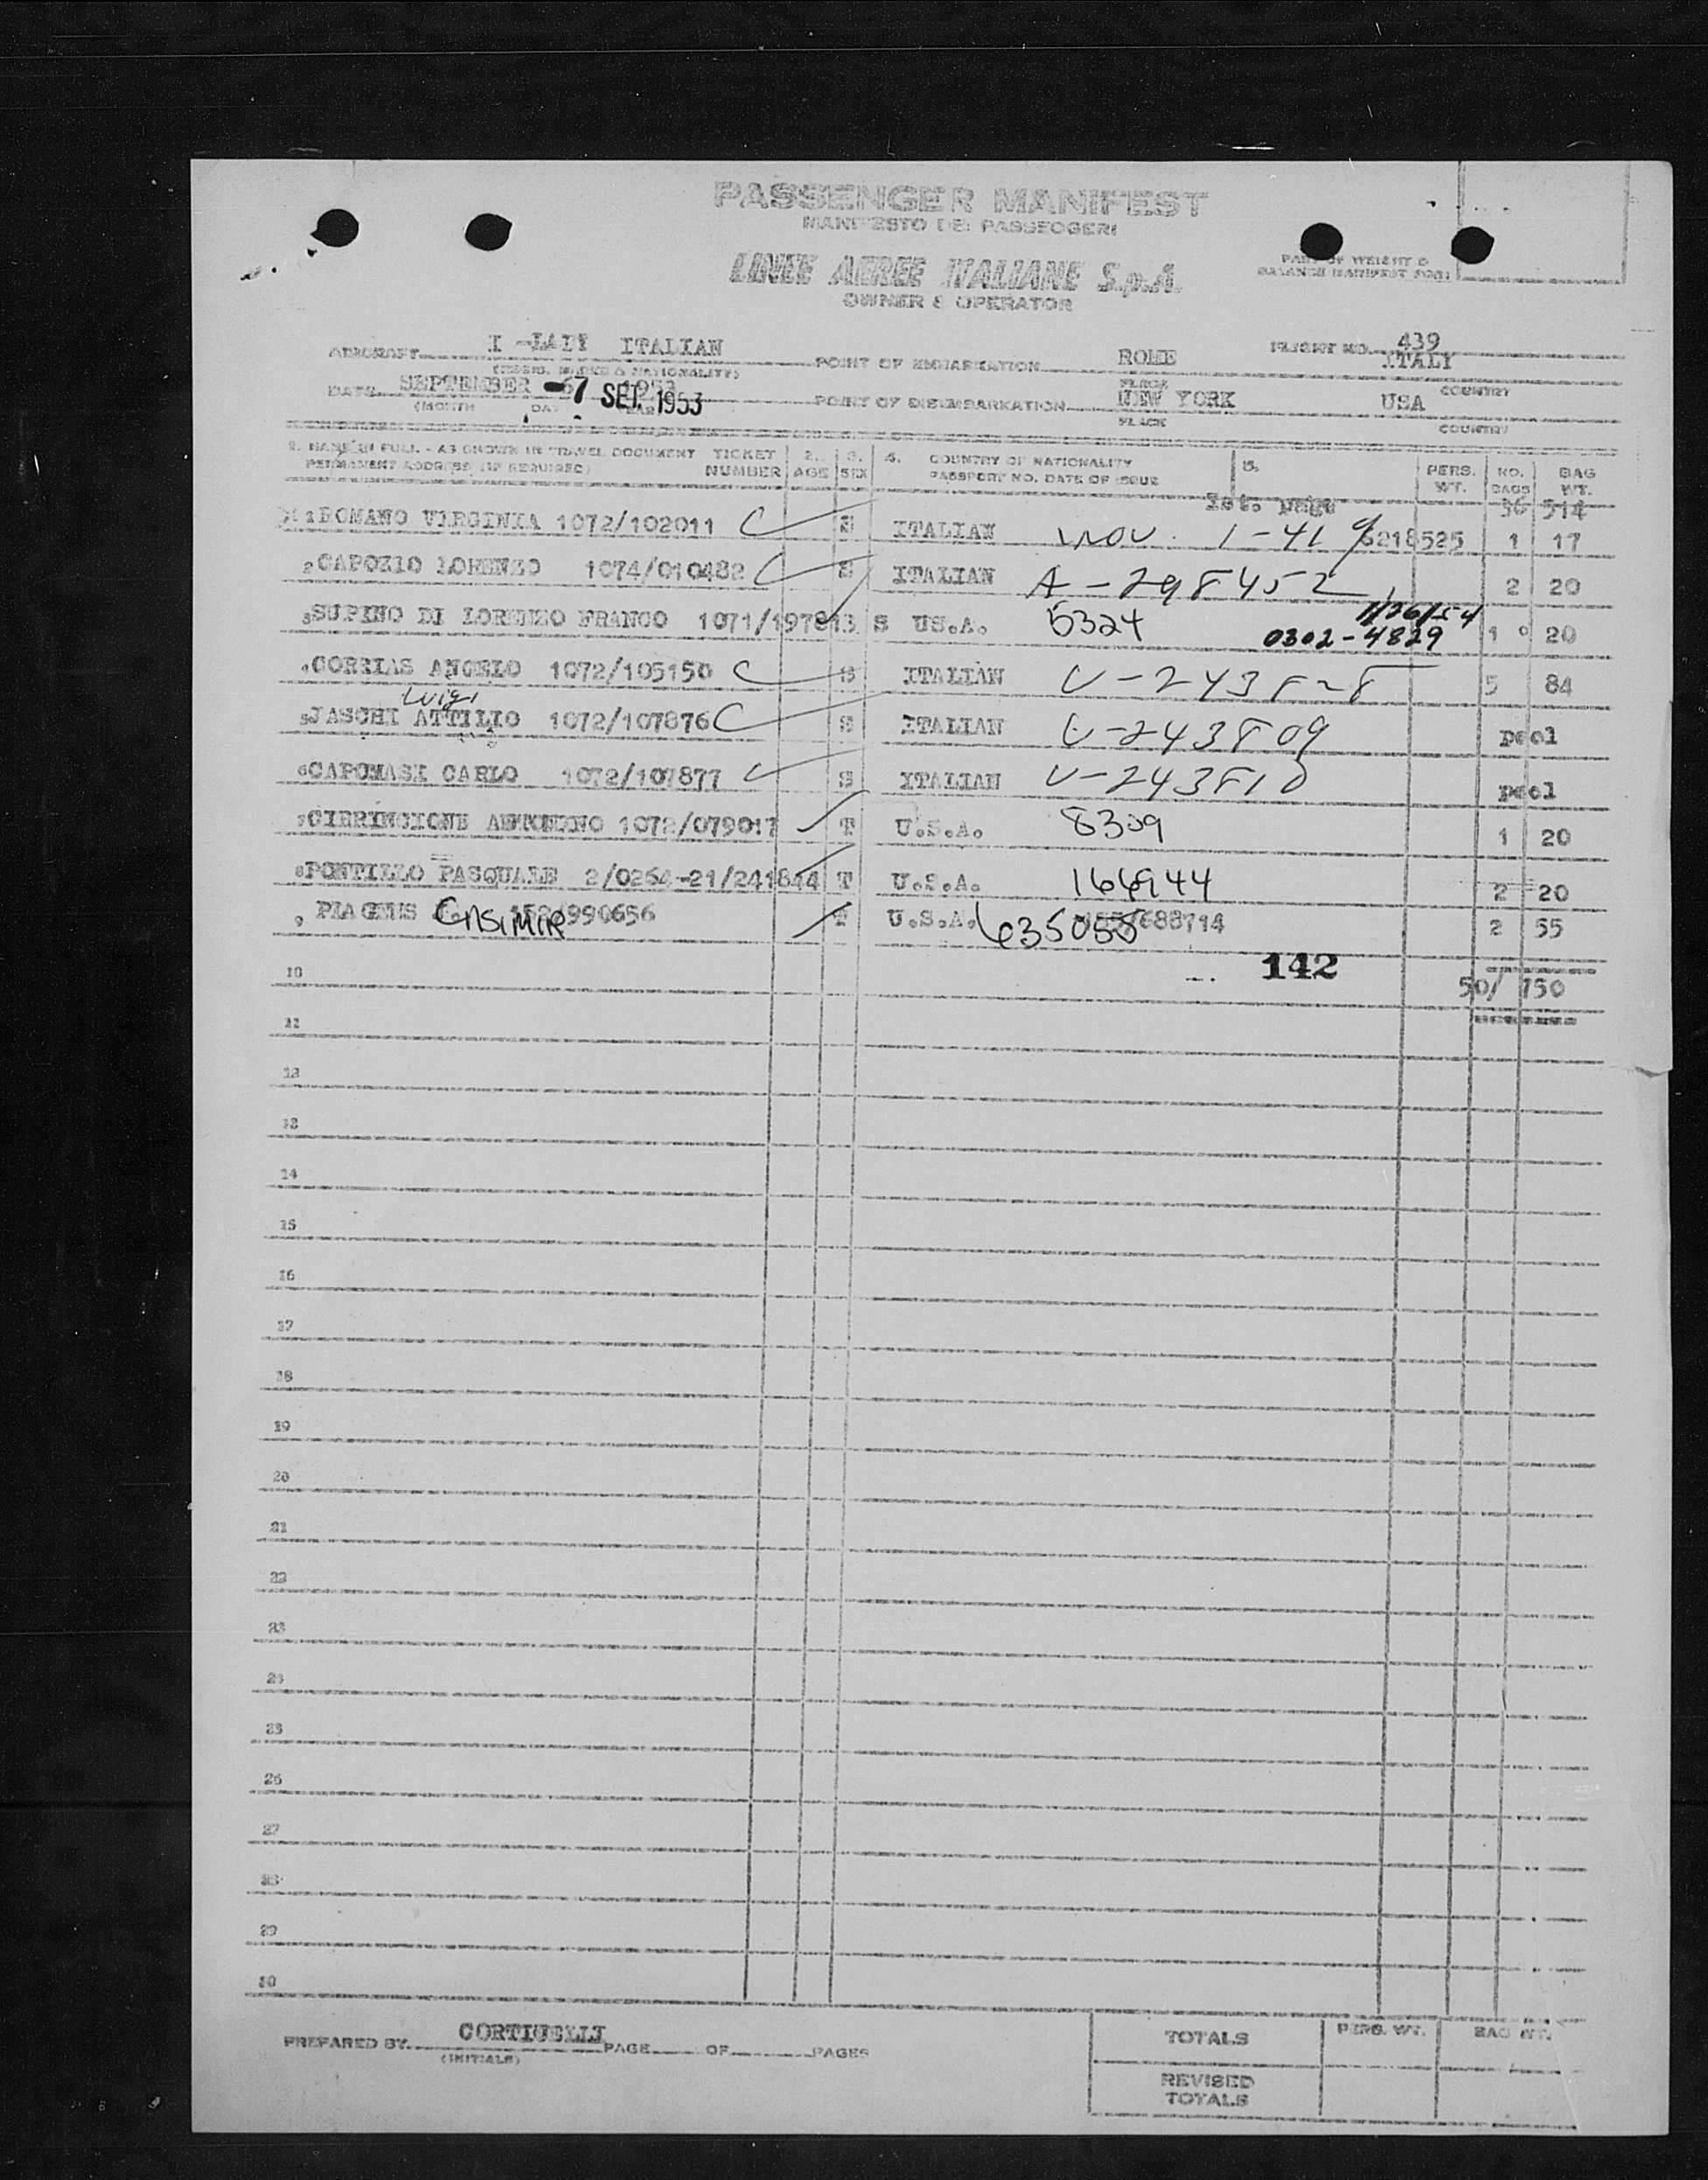 PASSENGER MANIFEST
MANIFESTO DEI PASSEGGERI
LINEE AEREE ITALIANE S.p.A.
OWNER & OPERATOR
PART OF WEIGHT &
BALANCE MANIFEST
AIRCRAFT I-LAIT ITALIAN POINT OF EMBARKATION ROME FLIGHT NO. 439
ITALY
(REGIS. MARKS & NATIONALITY) PLACE COUNTRY
DATE SEPTEMBER 1953 -7 SET. 1953 POINT OF DISEMBARKATION NEW YORK USA
(MONTH DAY YEAR PLACE COUNTRY
1. NAME IN FULL - AS SHOWN IN TRAVEL DOCUMENT TICKET 2. 3. 4. COUNTRY OF NATIONALITY 5. PERS. NO. BAG
PERMANENT ADDRESS (IF REQUIRED) NUMBER AGE SEX PASSPORT NO. DATE OF ISSUE WT. BAGS WT.
Ist. page 36 514
1 ROMANO VIRGINIA 1072/102011 S ITALIAN 1-41 6218525 1 17
2 CAPOZIO LORENZO 1074/010482 S ITALIAN A-298452 2 20
3 SUPINO DI LORENZO FRANCO 1071/197813 S US.A. 5324 1/26/54
0302-4829 1 20
4 CORRIAS ANGELO 1072/105150 S ITALIAN V-243828 5 84
Luigi
5 JASCHI ATTILIO 1072/107876 S ITALIAN V-243809 pool
6 CAPOMASI CARLO 1072/107877 S ITALIAN V-243810 pool
7 CIRRINCIONE ANTONINO 1072/079017 T U.S.A. 8309 1 20
8 PONTILLO PASQUALE 2/0264-21/241844 T U.S.A. 166944 2 20
9 PIAGEUS CASIMIR 990656 T U.S.A. 635058 688714 2 55
142
10 50/ 750
11
12
13
14
15
16
17
18
19
20
21
22
23
24
25
26
27
28
29
30
PREPARED BY CORTICELLI PAGE OF PAGES
(INITIALS)
TOTALS PERS. WT. BAG WT.
REVISED
TOTALS